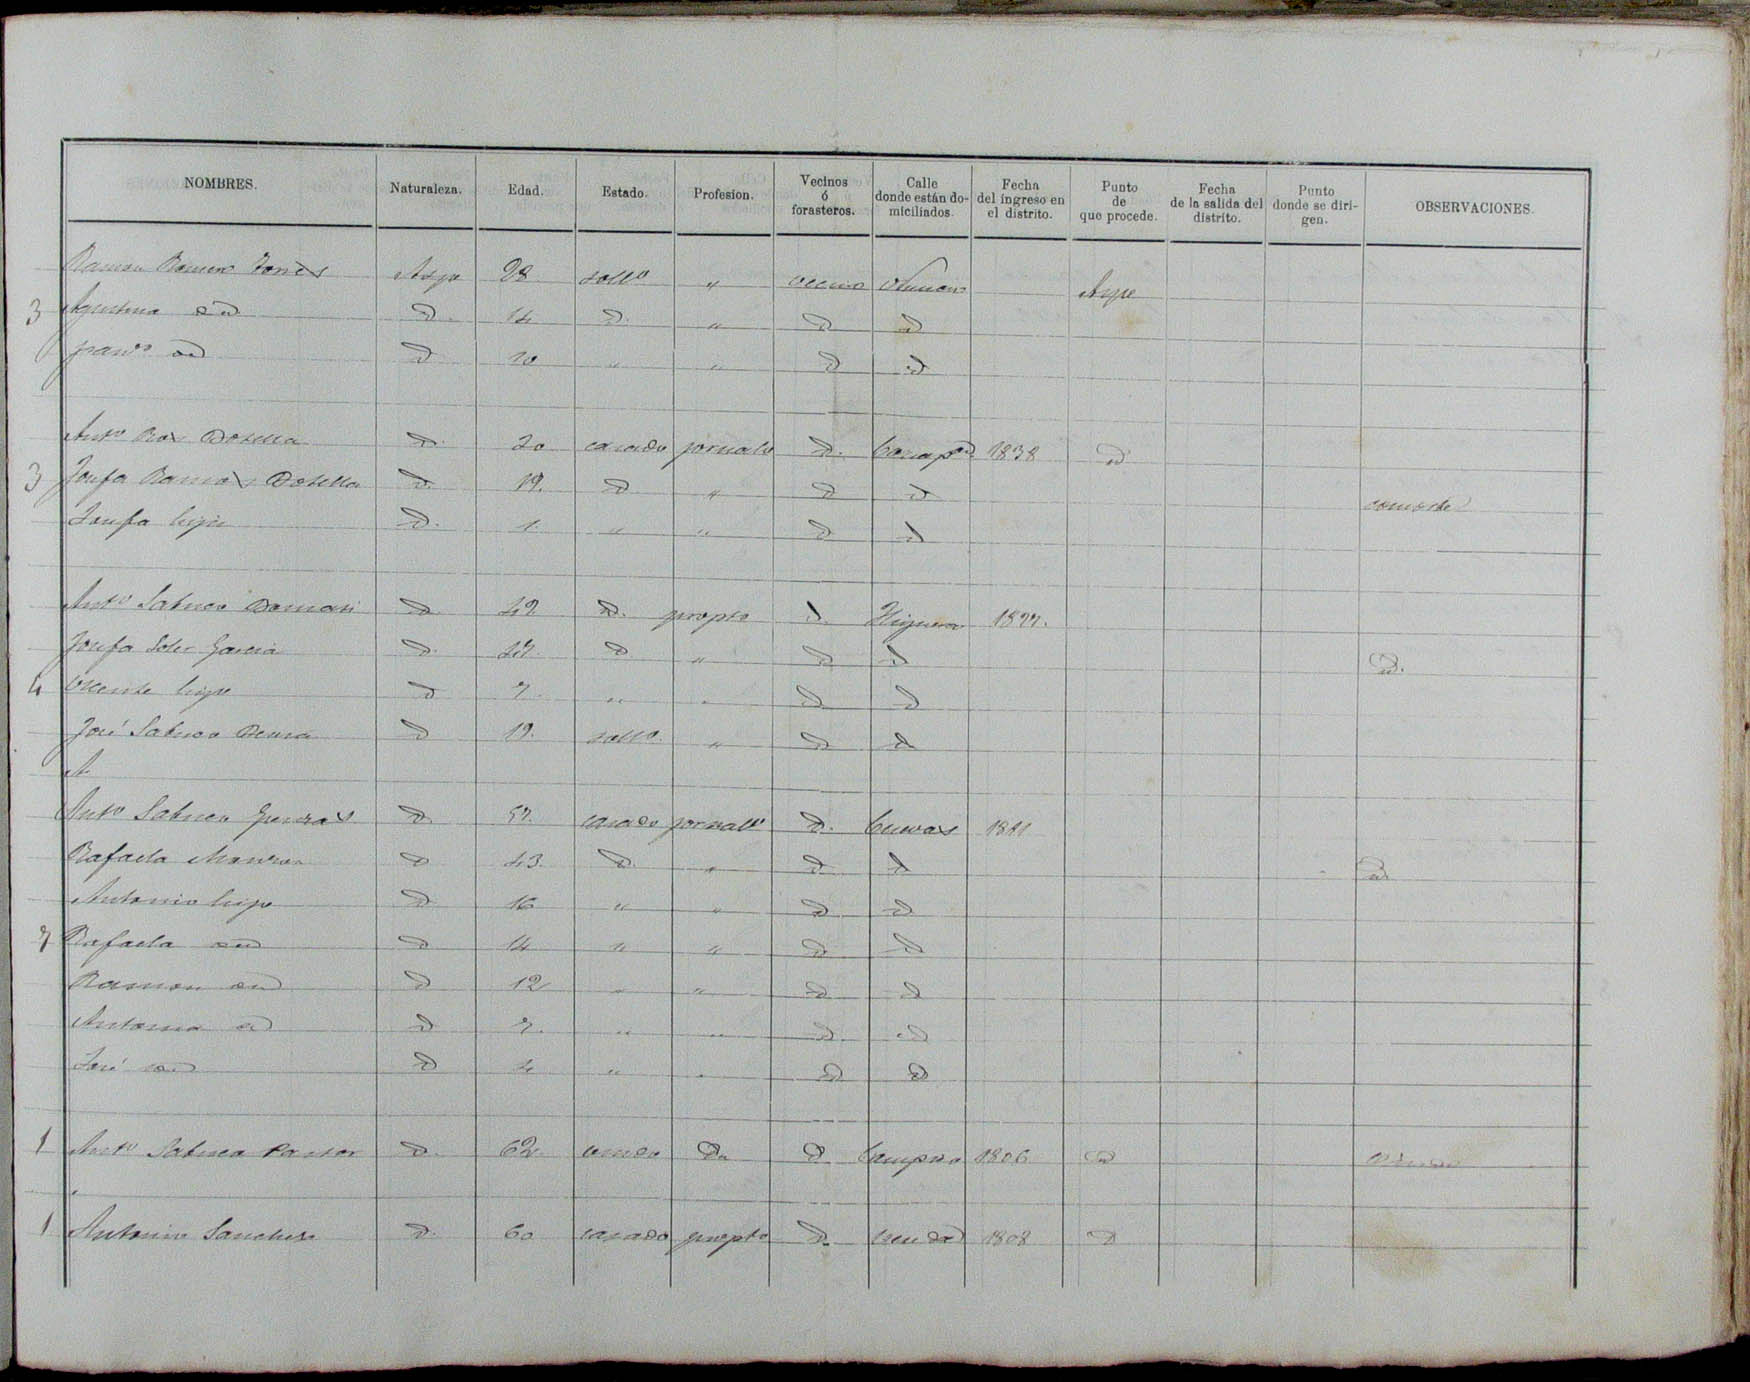 NOMBRES. Naturaleza. Edad. Estado. Profesion. Vecinos ó forasteros. Calle donde están domiciliados. Fecha del ingreso en el distrito. Punto de que procede. Fecha de la salida del distrito. Punto donde se dirigen. OBSERVACIONES.
Ramon Romero Torres Aspe 28 solt.º " vecino Aspe
3 Agustina id d. 14 d. " d d
Fran.co id d 10 " " d d
Ant.º Botella d. 20 casado jornal.º d. 1838 d
3 Josefa Ramos Botella d. 19. d " d d consorte
Josefa hija d. 1. " " d d
Ant.º Sabuco d. 42 d. propt.º d. Higuera 1827.
Josefa Soler Garcia d. 47. d " d d d.
4 Vicente hijo d 7. " " d d
José Sabuco d 19. solt.º " d d
A
Ant.º Sabuco d. 57. casado jornal.º d. Cuevas 1821
Rafaela d 43. d. " d d d
Antonio hijo d 16 " " d d
7 Rafaela id d 14 " " d d
Ramon id d 12 " " d d
Antonia id d 7. " " d d
José id d 4 " " d d
1 Ant.º Sabuco Pastor d. 62 viudo d d 1806 d viudo
1 Antonio Sanchez d. 60 casado propt.º d. 1808 d